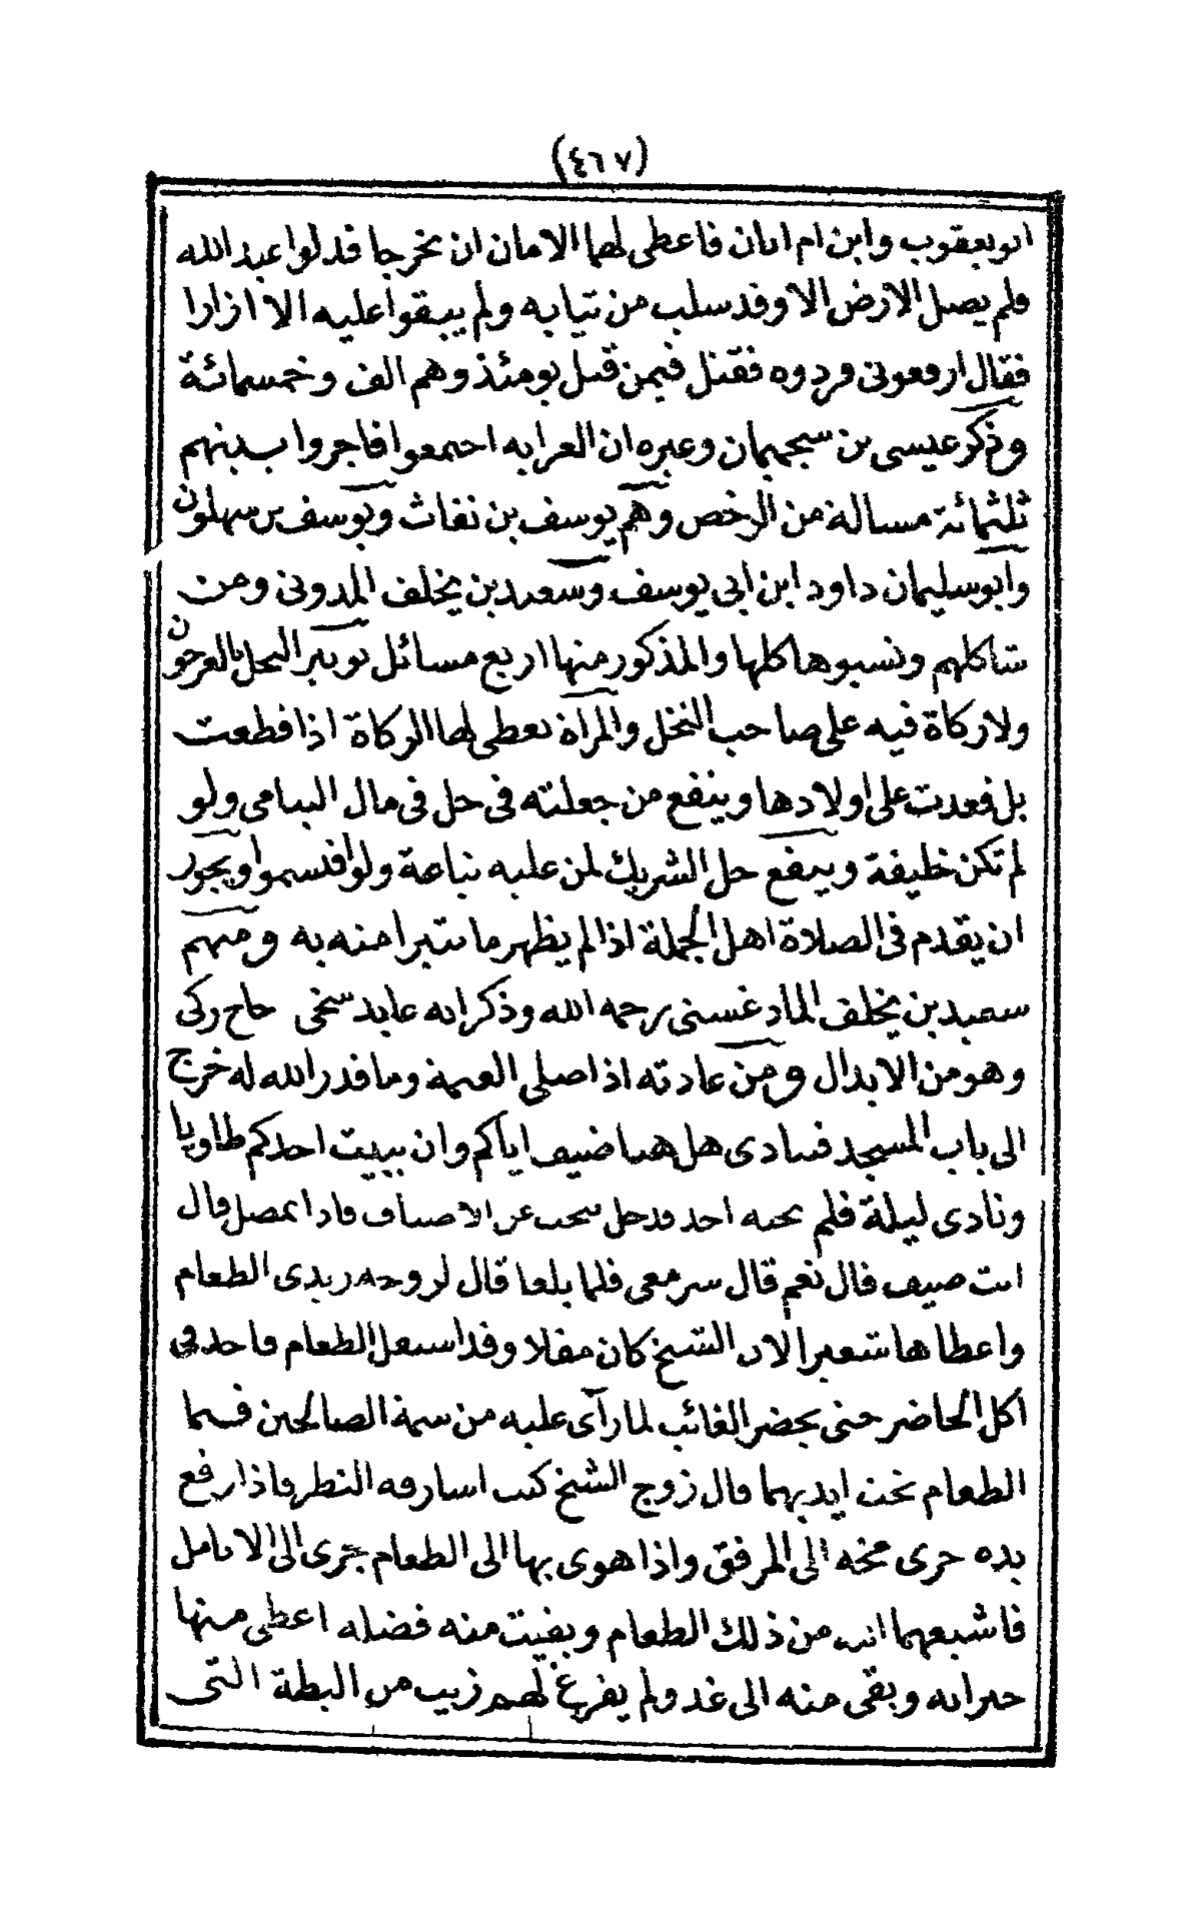 (٤٦٧)
ابو يعقوب وابن ام ابان فاعطى لهما الامان ان يخرجا فدلوا عبد الله
فلم يصل الارض الا وقد سلب من ثيابه ولم يبقوا عليه الا ازارا
فقال ارفعونى فردوه فقتل فيمن قتل يومئذ وهم الف وخمسمائة
وذكر عيسى بن سجميمان وغيره ان العزابه اجتمعوا فاجروا بينهم
ثلثمائة مسالة من الرخص وهم يوسف بن نفاث ويوسف بن سهلون
وابو سليمان داود ابن ابى يوسف وسعيد بن يخلف المدونى ومن
شاكلهم ونسبوها كلها والمذكور منها اربع مسائل توبير النخل بالعرجون
ولا زكاة فيه على صاحب النخل والمراة تعطى لها الزكاة اذا قطعت
بل قعدت على اولادها وينفع من جعلته فى حل فى مال اليتامى ولو
لم تكن خليفة وينفع حل الشريك لمن عليه تباعة ولو اقتسموا ويجوز
ان يقدم فى الصلاة اهل الجملة اذا لم يظهر ما نتبرا منه به ومنهم
سعيد بن يخلف المادغسنى رحمه الله وذكر انه عابد سخى حاج زكى
وهو من الابدال ومن عادته اذا صلى العتمة وما قدر الله له خرج
الى باب المسجد فينادى هل هنا ضيف اياكم وان يبيت احدكم طاويا
ونادى ليلة فلم يجبه احد فدخل يبحث عن الاضياف فاذا بمصل قال
انت ضيف قال نعم قال سر معى فلما بلغا قال لزوجه زيدى الطعام
واعطاها شعيرا لان الشيخ كان مقلا وقد استعمل الطعام فاخذ فى
اكل الحاضر حتى يحضر الغائب لما رآى عليه من سمة الصالحين فبينما
الطعام تحت ايديهما قال زوج الشيخ كنت اسارقه النظر فاذا رفع
يده جرى مخه الى المرفق واذا هوى بها الى الطعام جرى الى الانامل
فاشبعهما الله من ذلك الطعام وبقيت منه فضله اعطى منها
جيرانه وبقى منه الى غد ولم يفرغ لهم زبيب من البطة التى